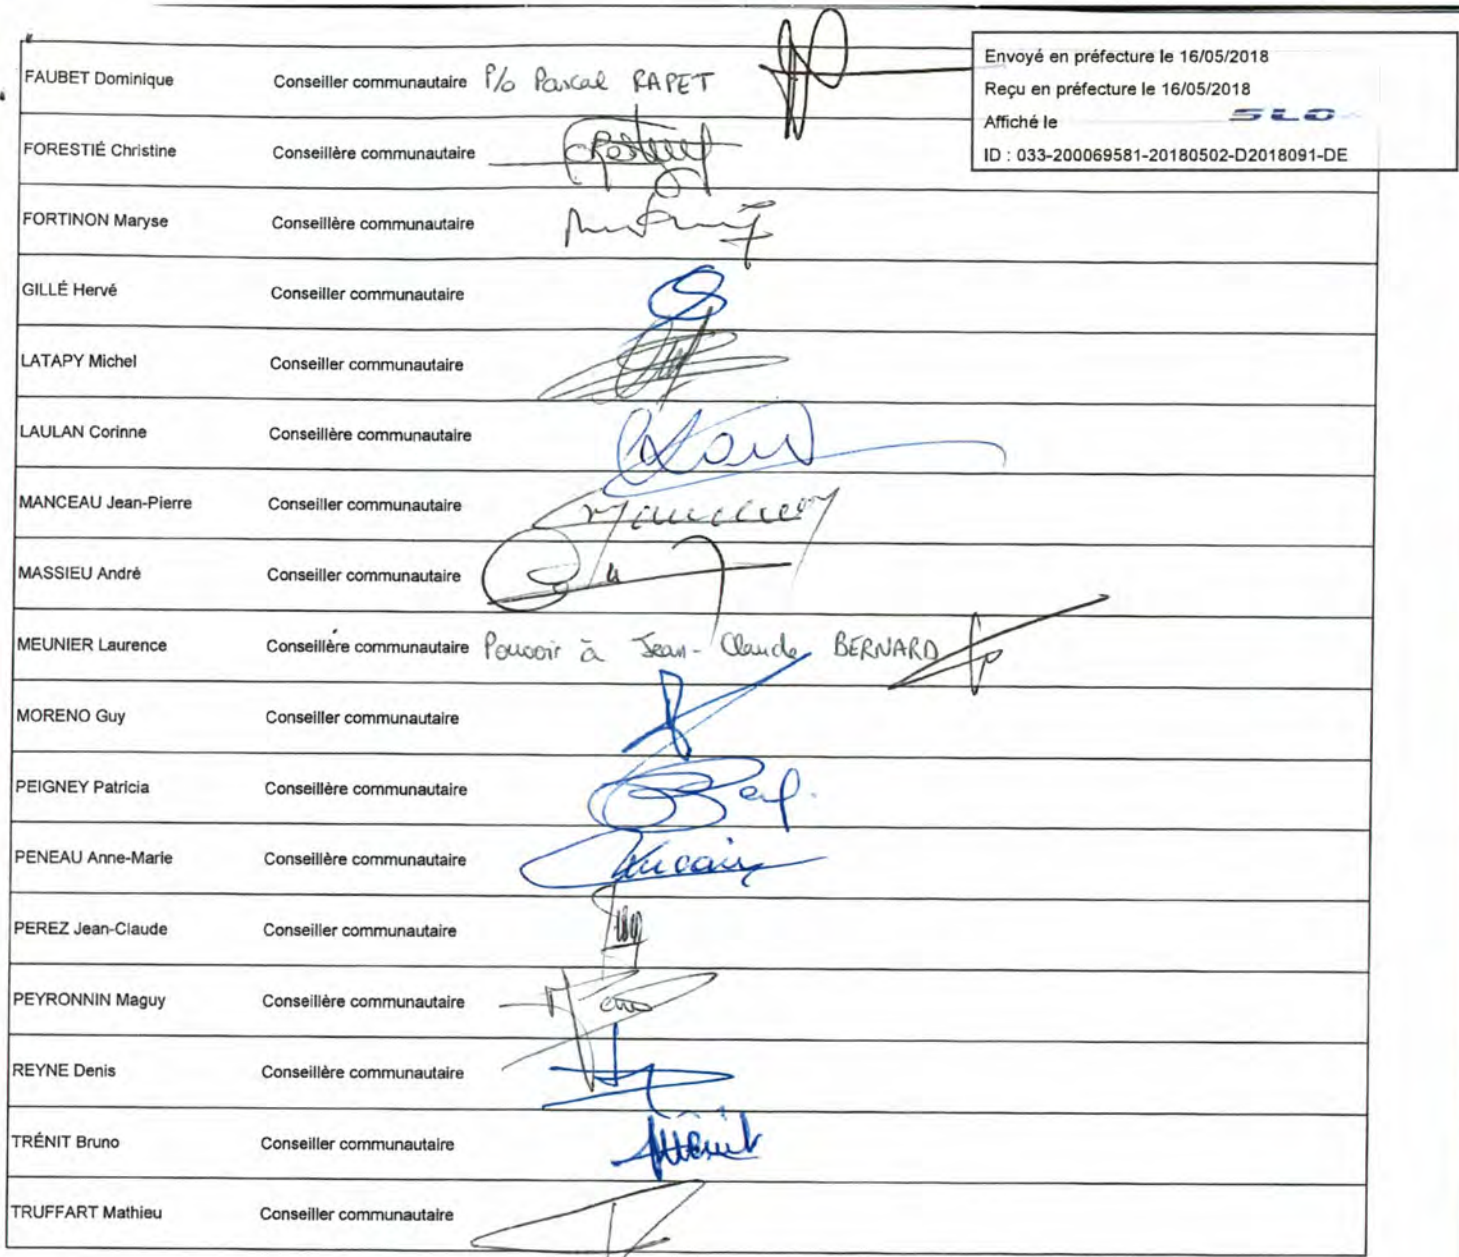 Envoyé en préfecture le 16/05/2018
Reçu en préfecture le 16/05/2018
Affiché le SLO
ID : 033-200069581-20180502-D2018091-DE
FAUBET Dominique Conseiller communautaire P/o Pascal RAPET
FORESTIÉ Christine Conseillère communautaire
FORTINON Maryse Conseillère communautaire
GILLÉ Hervé Conseiller communautaire
LATAPY Michel Conseiller communautaire
LAULAN Corinne Conseillère communautaire
MANCEAU Jean-Pierre Conseiller communautaire
MASSIEU André Conseiller communautaire
MEUNIER Laurence Conseillère communautaire Pouvoir à Jean-Claude BERNARD
MORENO Guy Conseiller communautaire
PEIGNEY Patricia Conseillère communautaire
PENEAU Anne-Marie Conseillère communautaire
PEREZ Jean-Claude Conseiller communautaire
PEYRONNIN Maguy Conseillère communautaire
REYNE Denis Conseillère communautaire
TRÉNIT Bruno Conseiller communautaire
TRUFFART Mathieu Conseiller communautaire